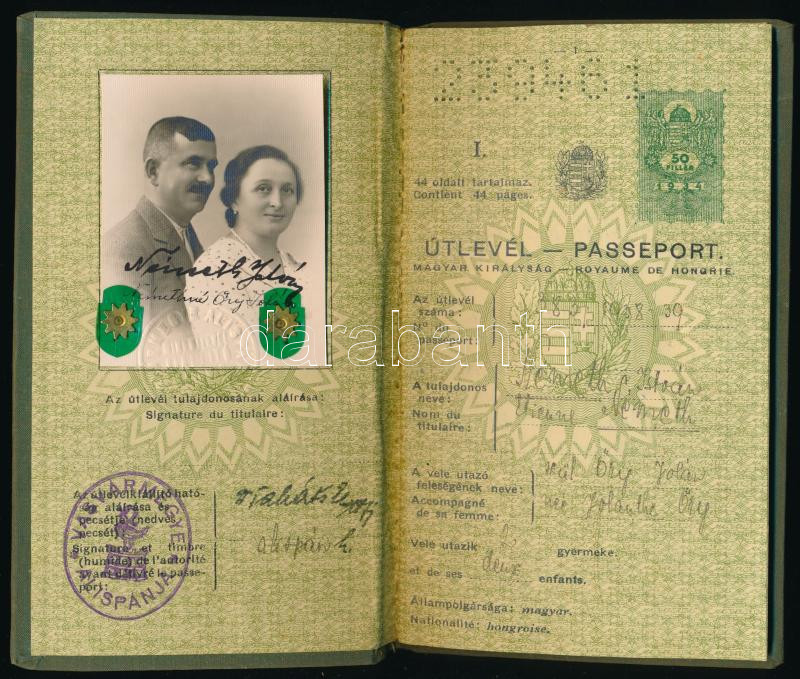 Németh István
Némethné Őry Jolán
Az útlevél tulajdonosának aláírása:
Signature du titulaire:
Az útlevélkiállító ható-
ság aláírása és
pecsétje (nedves
pecsét):
Signature et timbre
(humide) de l'autorité
ayant délivré le passe-
port:
alispán h.
VASVÁRMEGYE ALISPÁNJA
239461
I.
44 oldalt tartalmaz.
Contient 44 pages.
50
FILLÉR
ÚTLEVÉL — PASSEPORT.
MAGYAR KIRÁLYSÁG — ROYAUME DE HONGRIE.
Az útlevél
száma:
N° du
passeport:
1938 39
A tulajdonos
neve:
Nom du
titulaire:
Németh István
Etienne Németh
A vele utazó
feleségének neve:
Accompagné
de sa femme:
szül Őry Jolán
née Jolanthe Őry
Vele utazik gyermeke.
et de ses deux enfants.
Állampolgársága: magyar.
Nationalité: hongroise.
darabanth